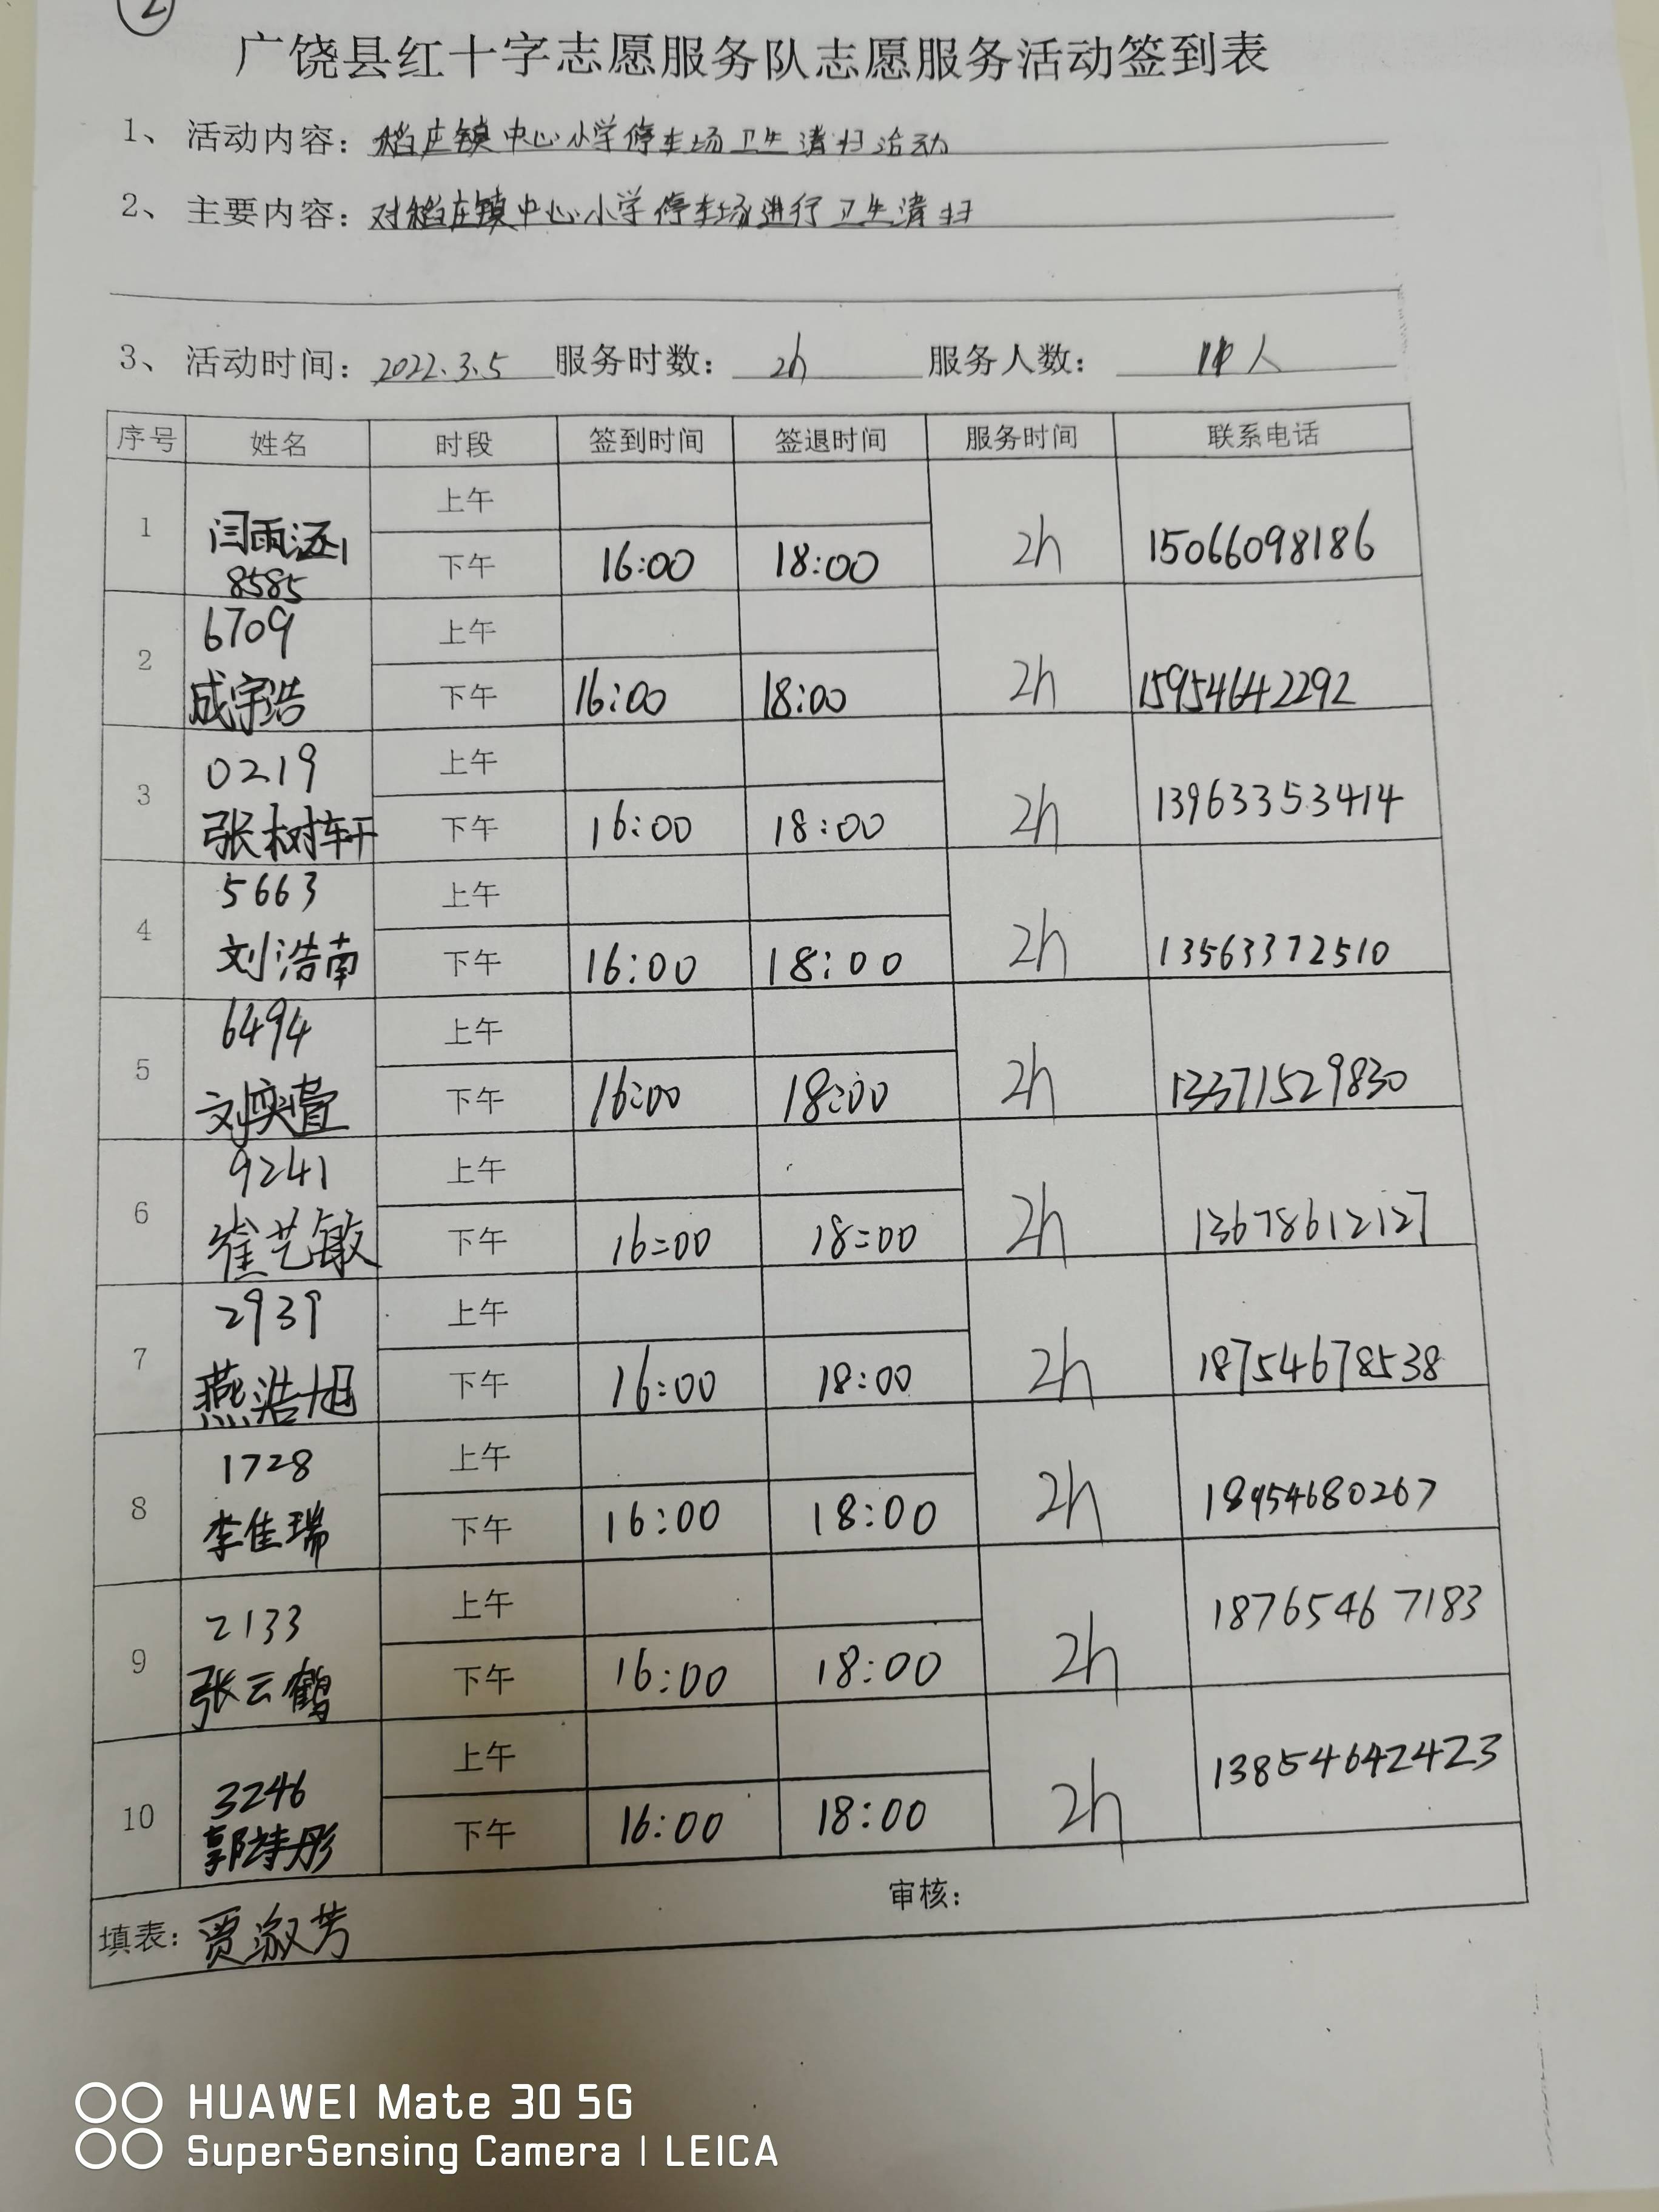 2
广饶县红十字志愿服务队志愿服务活动签到表
1、活动内容：稻庄镇中心小学停车场卫生清扫活动
2、主要内容：对稻庄镇中心小学停车场进行卫生清扫
3、活动时间：2022.3.5 服务时数：2h 服务人数：人
序号 姓名 时段 签到时间 签退时间 服务时间 联系电话
1 闫雨涵 8585 上午
下午 16:00 18:00 2h 15066098186
2 6709 成宇浩 上午
下午 16:00 18:00 2h 15954642292
3 0219 张树轩 上午
下午 16:00 18:00 2h 13963353414
4 5663 刘浩南 上午
下午 16:00 18:00 2h 13563372510
5 6494 刘奕萱 上午
下午 16:00 18:00 2h 13371529830
6 9241 崔艺敏 上午
下午 16:00 18:00 2h 13678612127
7 2939 燕浩旭 上午
下午 16:00 18:00 2h 18754678538
8 1728 李佳瑞 上午
下午 16:00 18:00 2h 18954680267
9 2133 张云鹤 上午
下午 16:00 18:00 2h 18765467183
10 3246 郭诗彤 上午
下午 16:00 18:00 2h 13854642423
填表：贾淑芳 审核：
HUAWEI Mate 30 5G
SuperSensing Camera | LEICA